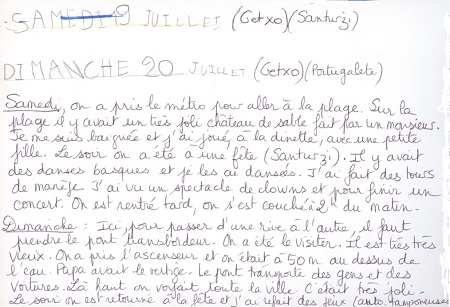 SAMEDI 19 JUILLET (Getxo)(Santurzi)
DIMANCHE 20 JUILLET (Getxo)(Portugalete)
Samedi, on a pris le métro pour aller à la plage. Sur la
plage il y avait un très joli château de sable fait par un monsieur.
Je me suis baignée et j'ai joué, à la dinette, avec une petite
fille. Le soir on a été à une fête (Santurzi). Il y avait
des danses basques et je les ai dansées. J'ai fait des tours
de manège. J'ai vu un spectacle de clowns et pour finir un
concert. On est rentré tard, on s'est couché à 2h du matin.
Dimanche : Ici, pour passer d'une rive à l'autre, il faut
prendre le pont transbordeur. On a été le visiter. Il est très très
vieux. On a pris l'ascenseur et on était à 50 m au dessus de
l'eau. Papa avait le vertige. Le pont transporte des gens et des
voitures. Là haut on voyait toute la ville. C'était très joli.
Le soir on est retourné à la fête et j'ai refait des jeux (auto. tamponneuses